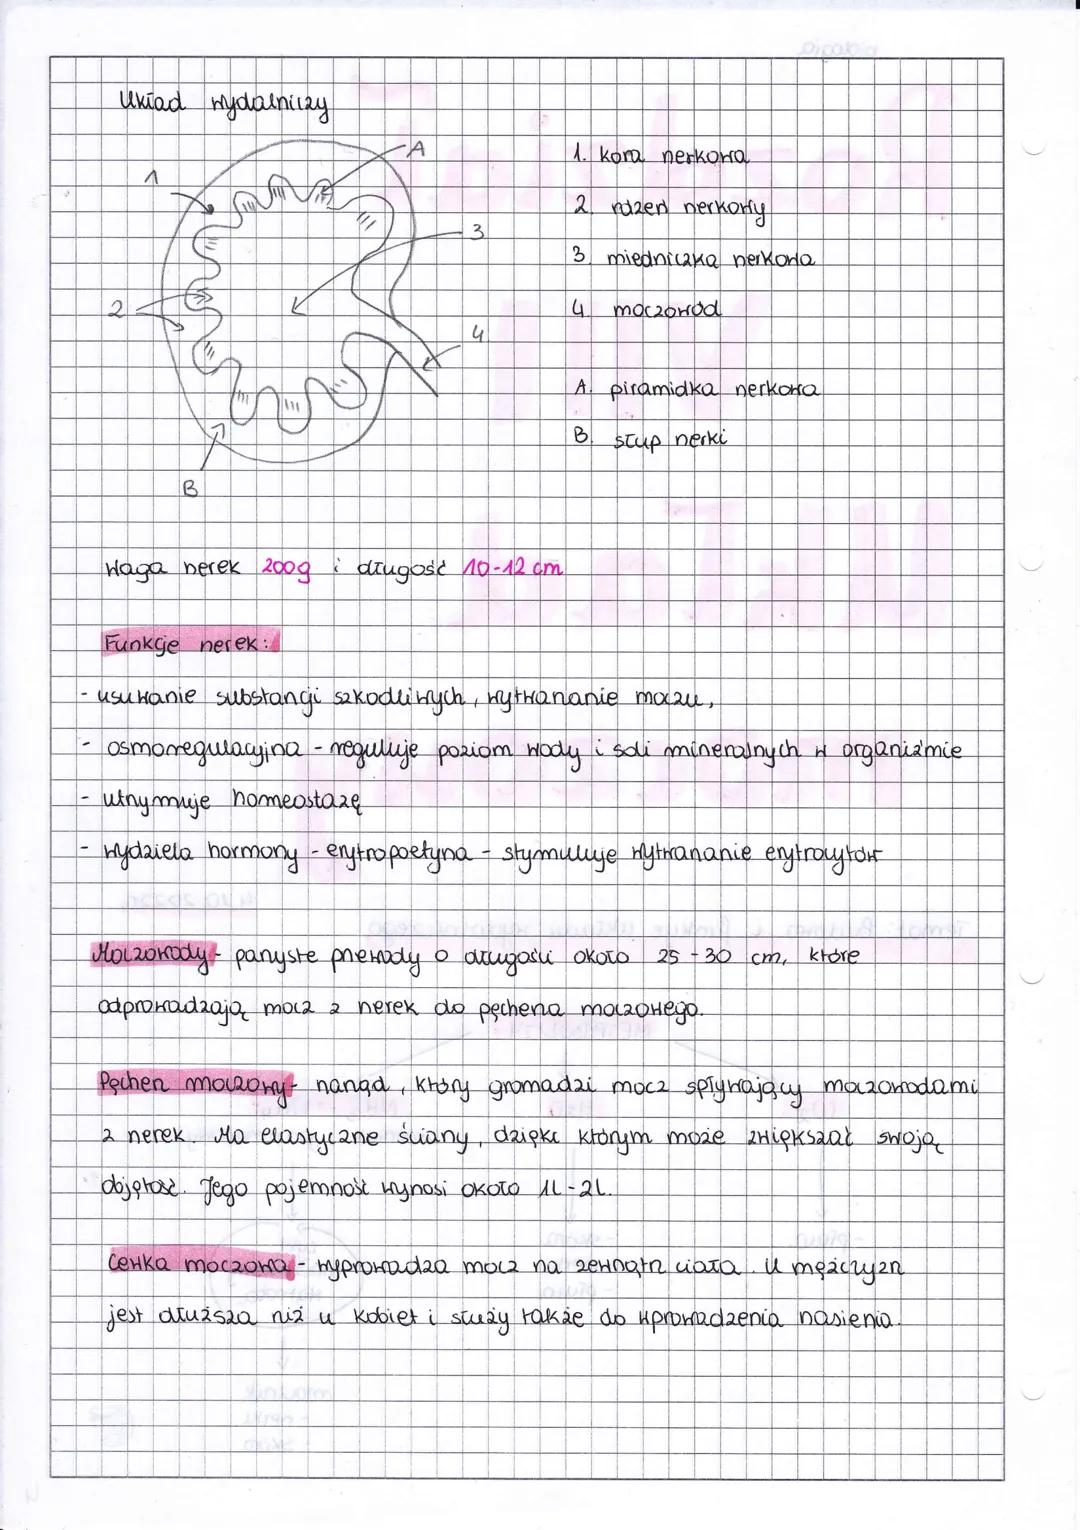 Układ wydalniczy
A
1
3
2
4
B
1. kora nerkowa
2. rdzeń nerkowy
3. miedniczka nerkowa
4. moczowód
A. piramidka nerkowa
B. słup nerki
Waga nerek 200g i długość 10-12 cm
Funkcje nerek:
- usuwanie substancji szkodliwych, wytwarzanie moczu,
- osmoregulacyjna - reguluje poziom wody i soli mineralnych w organizmie
- utrzymuje homeostazę
- wydziela hormony - erytropoetyna - stymuluje wytwarzanie erytrocytów
Moczowody - parzyste przewody o długości około 25-30 cm, które
odprowadzają mocz z nerek do pęcherza moczowego.
Pęcherz moczowy - narząd, który gromadzi mocz spływający moczowodami
z nerek. Ma elastyczne ściany, dzięki którym może zwiększać swoją
objętość. Jego pojemność wynosi około 1L-2L.
Cewka moczowa - wyprowadza mocz na zewnątrz ciała. U mężczyzn
jest dłuższa niż u kobiet i służy także do wprowadzenia nasienia.